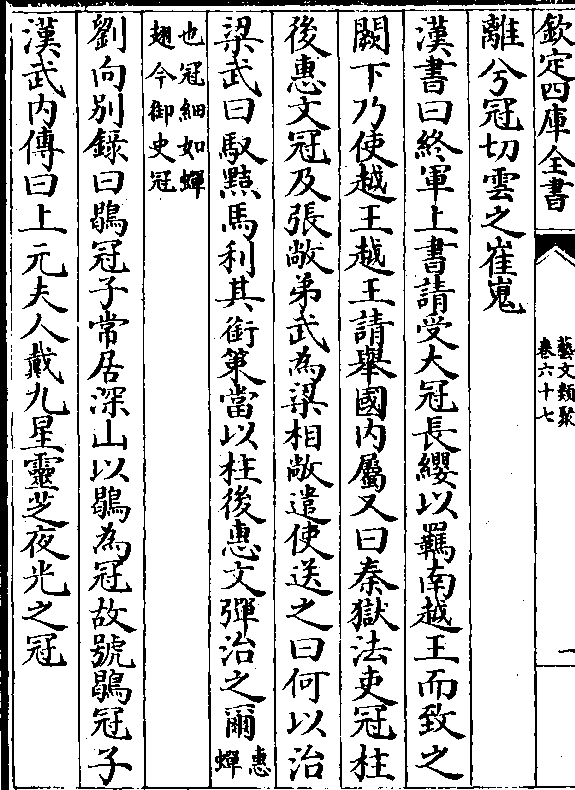 欽定四庫全書
藝文類聚
卷六十七
一
離兮冠切雲之崔嵬
漢書曰終軍上書請受大冠長纓以羈南越王而致之
闕下乃使越王越王請舉國內屬又曰秦獄法吏冠柱
後惠文冠及張敞弟武為梁相敞遣使送之曰何以治
梁武曰馭黠馬利其銜策當以柱後惠文彈治之爾惠蟬
也冠細如蟬
翅今御史冠
劉向別錄曰鶡冠子常居深山以鶡為冠故號鶡冠子
漢武內傳曰上元夫人戴九星靈芝夜光之冠